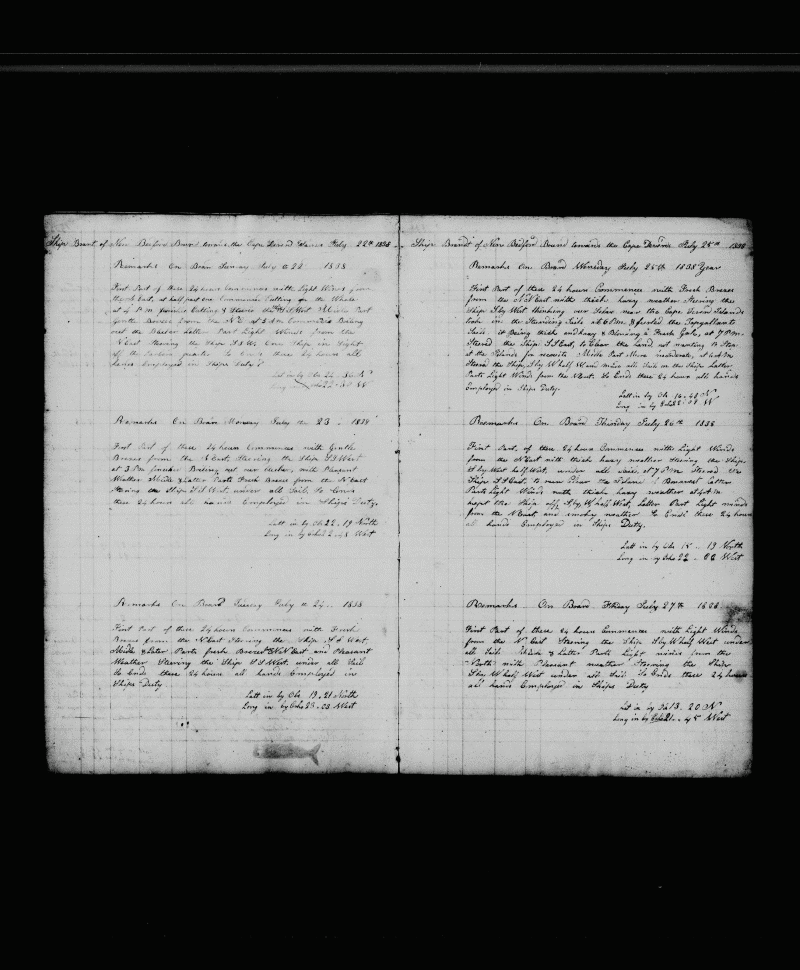 Ship Brandt of New Bedford Bound towards the Cape Deverd Islands July 22th 1838
Remarks On Board Sunday July the 22 1838
First Part of these 24 hours Commences with Light Winds from
the N East, at half past one Commenced Cutting on the Whale
at 6 P m finished Cutting & Steered the Ship S S West Middle Part
Gentle Breeze from the N E at 3 A m Commenced Boiling
out the Latter Part Light Winds from the
N East Steering the Ship S S W, One Ship in Sight
off the So Ends these 24 hours all
hands Employed in Ships Duty
Lat in by Obs 24 .. 36 N
Long in by Ochs 22 .. 30 W
Remarks On Board Monday July the 23 .. 1838
First Part of these 24 hours Commences with Gentle
Breezes from the N East, Steering the Ship S S West
at 3 P m finished Boiling out, with Pleasant
Weather Middle & Latter Parts Fresh Breeze from the N East
Steering the Ship S S West, under all Sail. So Ends
these 24 hours all hands Employed in Ships Duty,
Latt in by Obs 22 .. 19 North
Long in by Ochs 22 .. 48 West
Remarks On Board Tuesday July the 24 .. 1838
First Part of these 24 hours Commences with Fresh
Breeze from the N East Steering the Ship S S West,
Middle & Later Parts fresh Breeze N N East and Pleasant
Weather Steering the Ship S S West, under all Sail
So Ends these 24 hours all hands Employed in
Ships Duty
Latt in by Obs 19 .. 21 North
Long in by Ochs 23 .. 03 West
Ship Brandt of New Bedford Bound towards the Cape Deverds July 25th 1838
Remarks On Board Wensday July 25th 1838 Year
First Part of these 24 hours Commences with Fresh Breeze
from the N East with thick hazy weather Steering the
Ship S by West thinking our Selves near the Cape Deverd Islands
took in the Studding Sails at 6 P m & furled the Topgallant
Sails it Being thick and hazy & Blowing a Fresh Gale, at 7 P m
Steered the Ship S S East, to Clear the Land, not wanting to Stop
at the Islands for recruits Middle Part More moderate, at 4 A m
Steered the Ship S by W half W and made all Sail on the Ship Latter
Parts Light Winds from the N East. So Ends these 24 hours all hands
Employed in Ships Duty.
Latt in by Obs 16 .. 48 N
Long in by Ochs 22 .. 04 W
Remarks On Board Thursday July 26th 1838
First Part, of these 24 hours Commences with Light Winds
from the N East with thick hazy weather Steering the Ship
S by West half West, under all Sail, at 7 P m Steered the
Ship S S East, to run Clear the Island Latter
Parts Light Winds with thick hazy weather at 4 A m
kept the Ship off S by W half West, Latter Part Light winds
from the N East and smoky weather So Ends these 24 hours
all hands Employed in Ships Duty.
Latt in by Obs 15 .. 19 North
Long in by Ochs 22 .. 06 West
Remarks On Board Friday July 27th 1838
First Part of these 24 hours Commences with Light Winds
from the N East Steering the Ship S by W half West under
all Sail Middle & Latter Parts Light winds from the
North with Pleasant weather Steering the Ship
S by W half West under all Sail So Ends these 24 hours
all hands Employed in Ships Duty
Lat in by Ob 13 .. 20 N
Long in by Ochs 21 .. 45 West